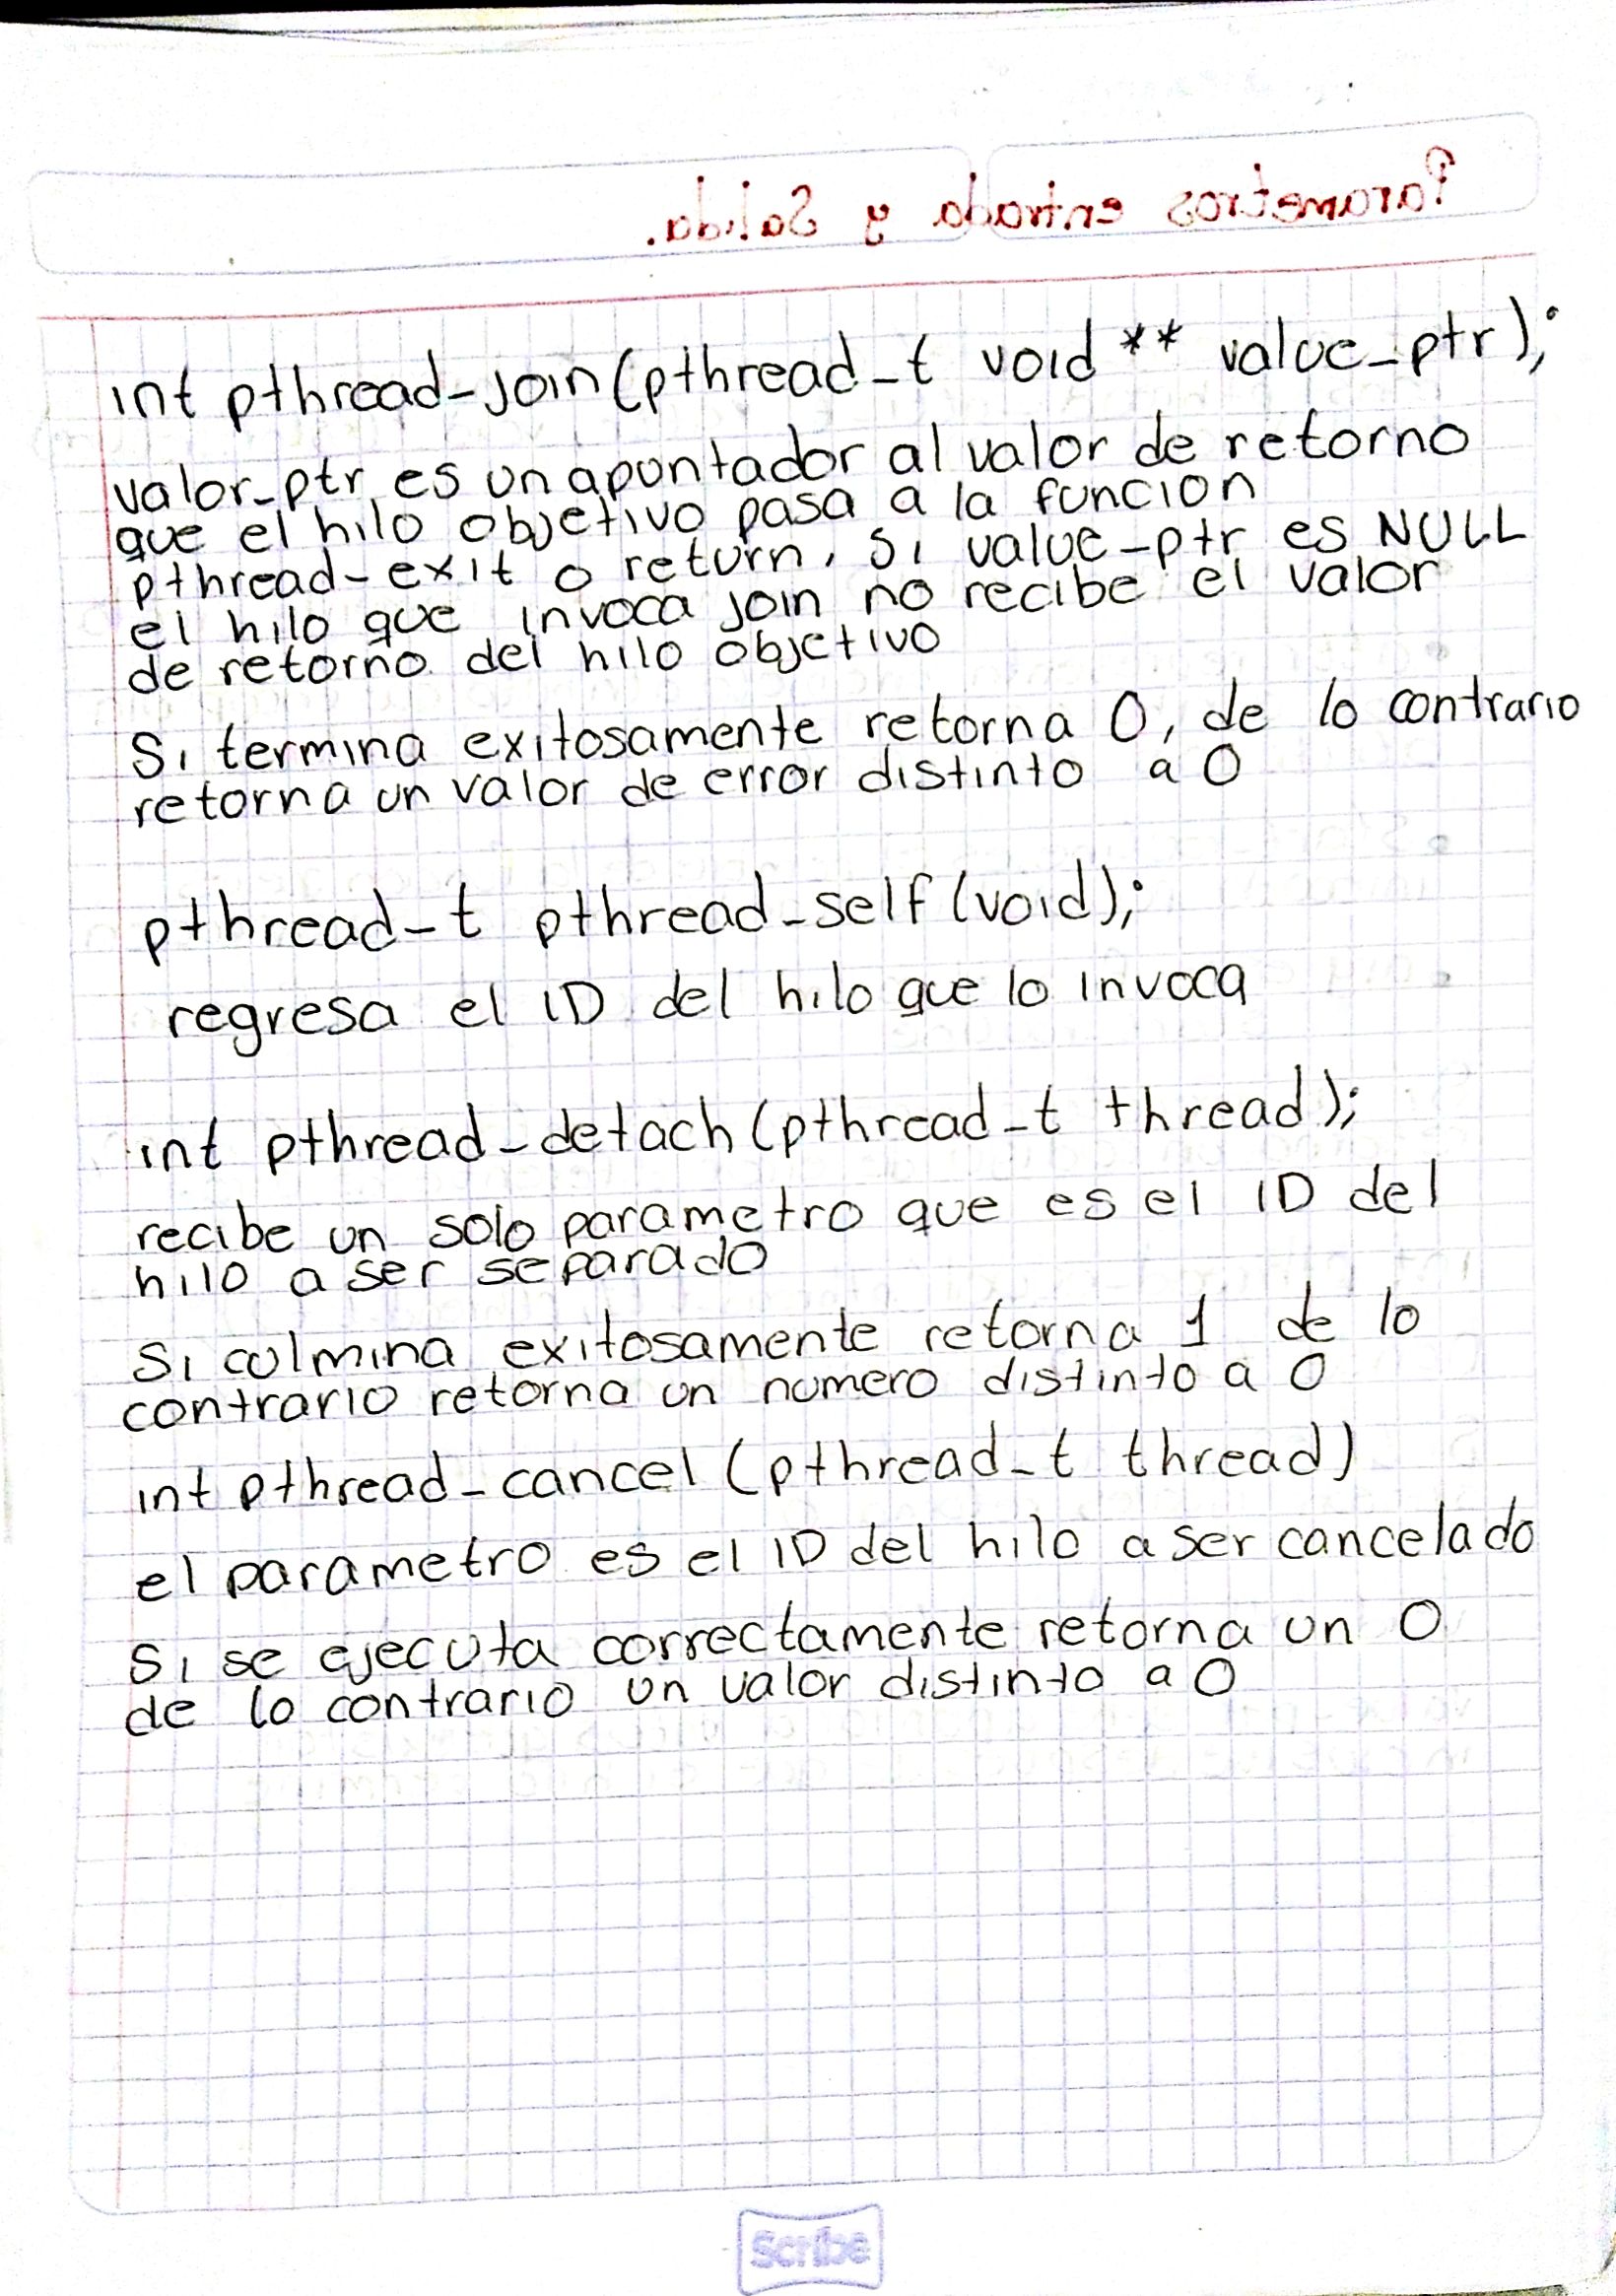 Parametros entrada y Salida.
int pthread_join(pthread_t void ** value_ptr);
valor_ptr es un apuntador al valor de retorno
que el hilo objetivo pasa a la funcion
pthread_exit o return, si value_ptr es NULL
el hilo que invoca join no recibe el valor
de retorno del hilo objetivo
Si termina exitosamente retorna 0, de lo contrario
retorna un valor de error distinto a 0
pthread_t pthread_self(void);
regresa el ID del hilo que lo invoca
int pthread_detach(pthread_t thread);
recibe un solo parametro que es el ID del
hilo a ser separado
Si culmina exitosamente retorna 1 de lo
contrario retorna un numero distinto a 0
int pthread_cancel(pthread_t thread)
el parametro es el ID del hilo a ser cancelado
Si se ejecuta correctamente retorna un 0
de lo contrario un valor distinto a 0
Scribe